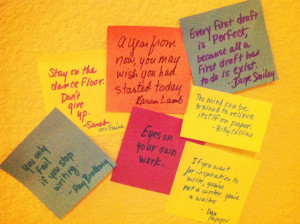 Stay on the
dance floor.
Don't
give
up.
-Sarah
A year from
now, you may
wish you had
started today
Karen Lamb
Every first draft
is perfect,
because all a
first draft has
to do is exist.
-Jane Smiley
The mind can be
trained to relieve
itself on paper.
-Billy Collins
Eyes on
your own
work.
You only
fail
if you stop
writing.
-Ray Bradbury
If you wait
for inspiration to
write, you're
not a writer, you're
a waiter.
-Dan
Poynter